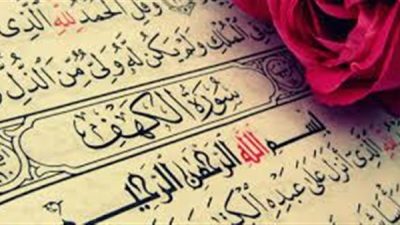 وَقُلِ الْحَمْدُ لِلَّهِ الَّذِي
فِي الْمُلْكِ وَلَمْ يَكُنْ لَهُ وَلِيٌّ مِنَ الذُّلِّ
سُورَةُ الْكَهْفِ
بِسْمِ اللَّهِ الرَّحْمَٰنِ الرَّحِيمِ
لِلَّهِ الَّذِي أَنْزَلَ عَلَىٰ عَبْدِهِ الْكِتَابَ